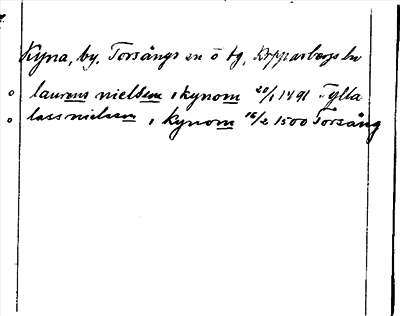 Kyna, by, Torsångs sn o tg, Kopparbergs ln
laurens nielsson i kynom 20/1 1491 Tylla
lass nielsson i kynom 16/2 1500 Torsång